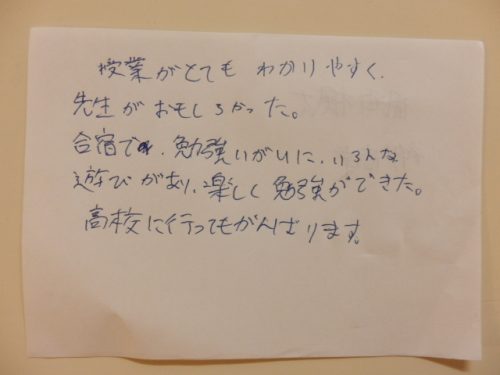 授業がとてもわかりやすく、
先生がおもしろかった。
合宿で、勉強いがいに、いろんな
遊びがあり、楽しく勉強ができた。
高校に行ってもがんばります。